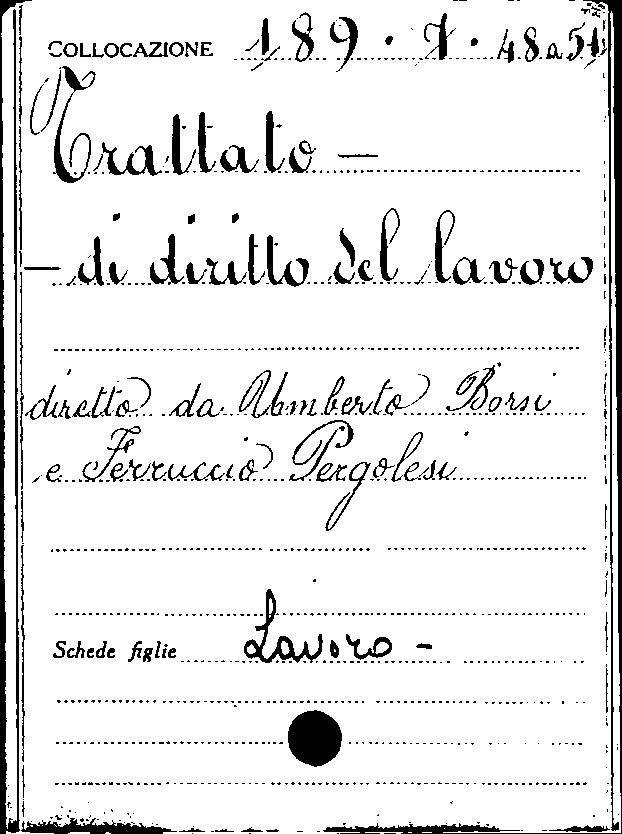 COLLOCAZIONE 189. 7. 48 a 51
Trattato —
— di diritto del lavoro
diretto da Umberto Borsi
e Ferruccio Pergolesi
Schede figlie Lavoro -